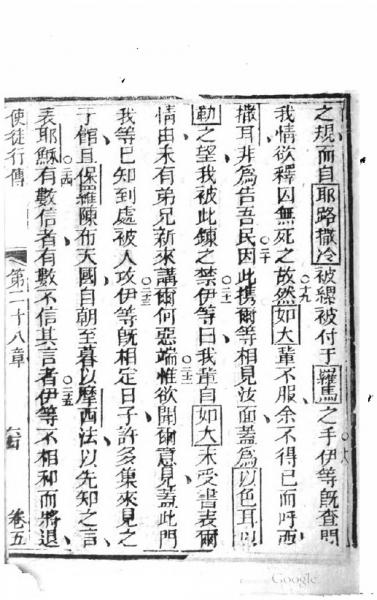 之規而自耶路撒冷被縲被付于羅馬之手伊等既查問
○十八
我情欲釋囚無死之故然如大輩不服余不得已而呼西
○十九
撒耳非為告吾民因此携爾等相見汝面蓋為以色耳以
○二十
勒之望我被此鍊之禁伊等曰我輩自如大未受書表爾
○二一
情由未有弟兄新來講爾何惡端惟欲聞爾意見蓋此門
○二二
我等已知到處被人攻伊等既相定日子許多集來見之
○二三
于館且保羅陳布天國自朝至暮以摩西法以先知之言
表耶穌有數信者有數不信其言者伊等不相和而將退
○二四
○二五
使徒行傳
第二十八章
卷五
Google